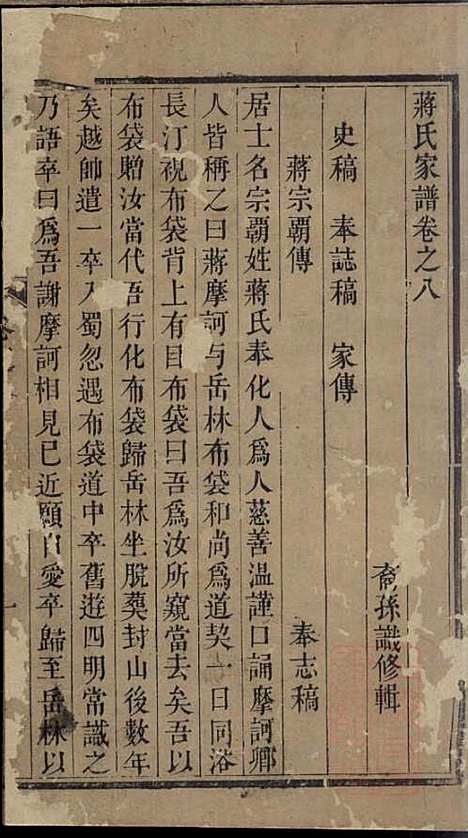 蔣氏家譜卷之八
裔孫識修輯
史稿 奉誌稿 家傳
蔣宗霸傳 奉志稿
居士名宗霸姓蔣氏奉化人爲人慈善温謹口誦摩訶鄉
人皆稱之曰蔣摩訶与岳林布袋和尚爲道契一日同浴
長汀視布袋背上有目布袋曰吾爲汝所窺當去矣吾以
布袋贈汝當代吾行化布袋歸岳林坐脫葬封山後數年
矣越帥遣一卒入蜀忽遇布袋道中卒舊遊四明常識之
乃語卒曰爲吾謝摩訶相見已近願自愛卒歸至岳林以